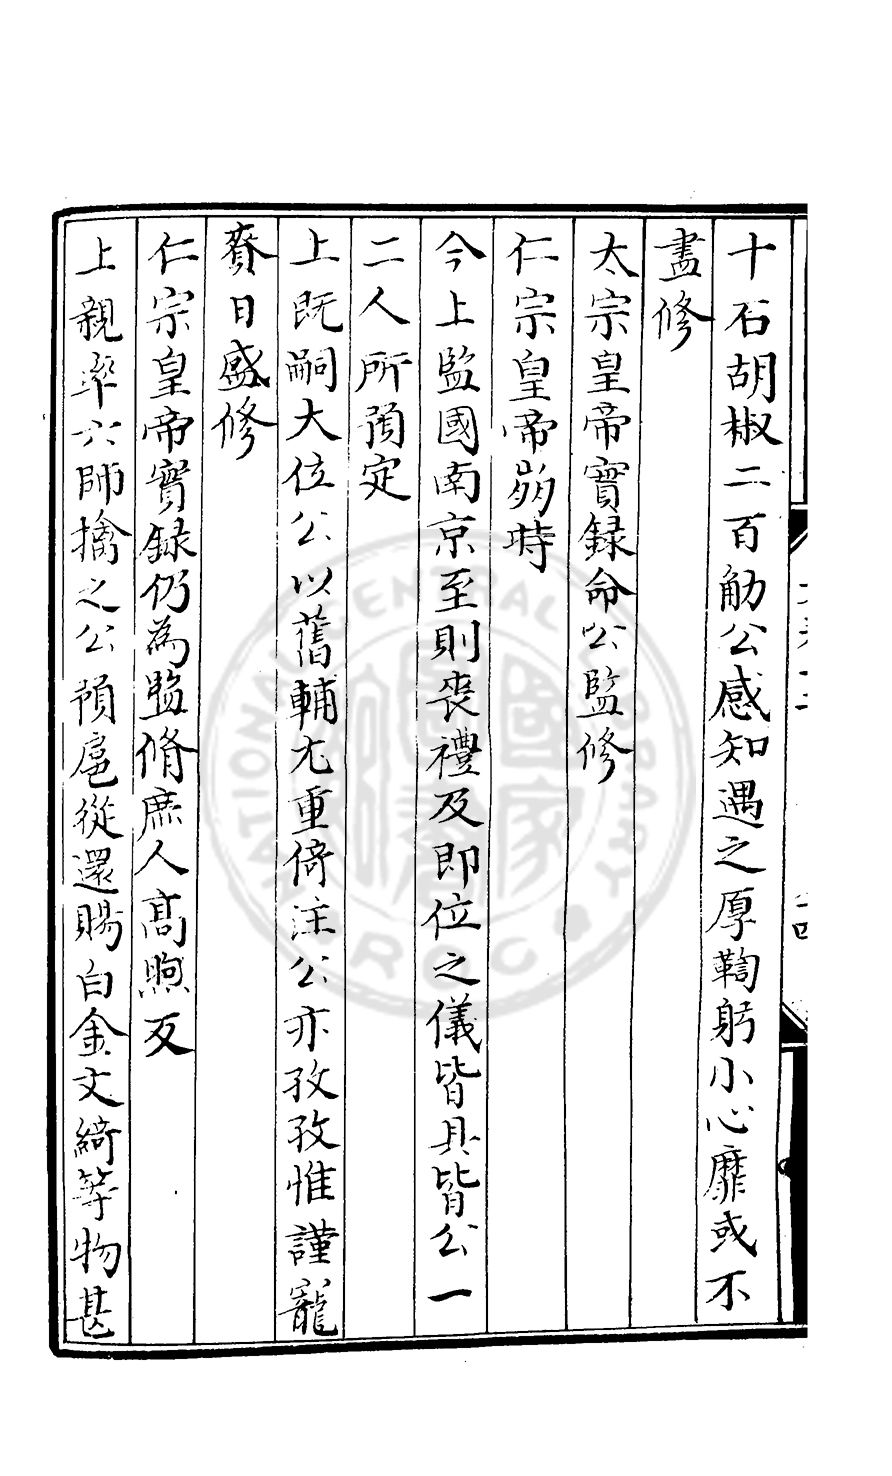 十石胡椒二百觔公感知遇之厚鞠躬小心靡或不
盡修
太宗皇帝實録命公監修
仁宗皇帝崩時
今上監國南京至則喪禮及即位之儀皆具皆公一
二人所預定
上既嗣大位公以舊輔尤重倚注公亦孜孜惟謹寵
賚日盛修
仁宗皇帝實録仍為監脩庶人高煦反
上親率六師擒之公預扈從還賜白金文綺等物甚
NATIONAL CENTRAL LIBRARY
R.O.C